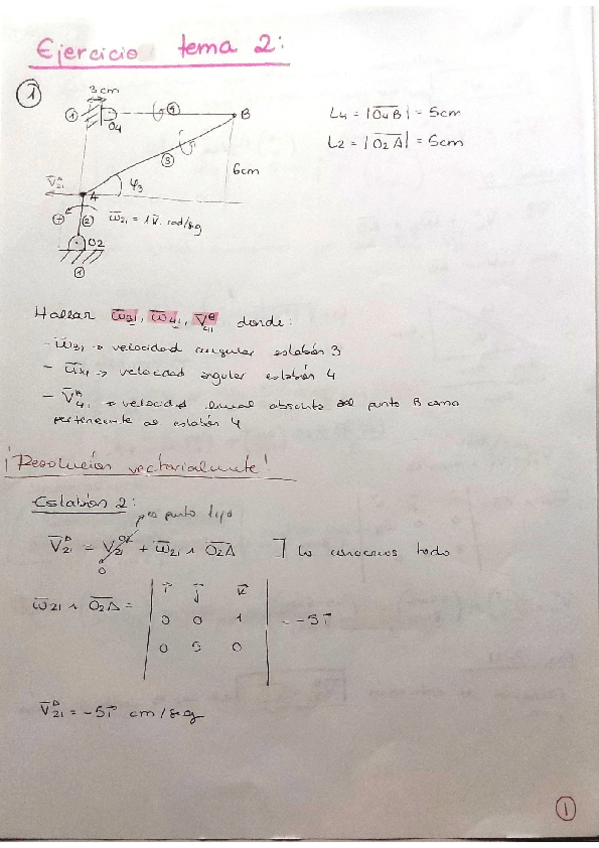 Ejercicio tema 2:
① 3cm
① O4 ④ B
L4 = |O̅4̅B̅| = 5cm
L2 = |O̅2̅A̅| = 5cm
③ 6cm
V̅21^A A φ3
+ ② ω̅21 = 1k̅ rad/sg
O2
①
Hallar ω̅31, ω̅41, V̅41^B donde:
- ω̅31 → velocidad angular eslabón 3
- ω̅41 → velocidad angular eslabón 4
- V̅41^B → velocidad lineal absoluta del punto B como
perteneciente al eslabón 4
¡Resolución vectorialmente!
Eslabón 2:
es punto fijo
V̅21^A = V̅21^O2 + ω̅21 ∧ O̅2̅A̅ ] lo conocemos todo
0
ω̅21 ∧ O̅2̅A̅ = | i⃗ j⃗ k⃗ |
| 0 0 1 | = -5i⃗
| 0 5 0 |
V̅21^A = -5i⃗ cm/sg
①